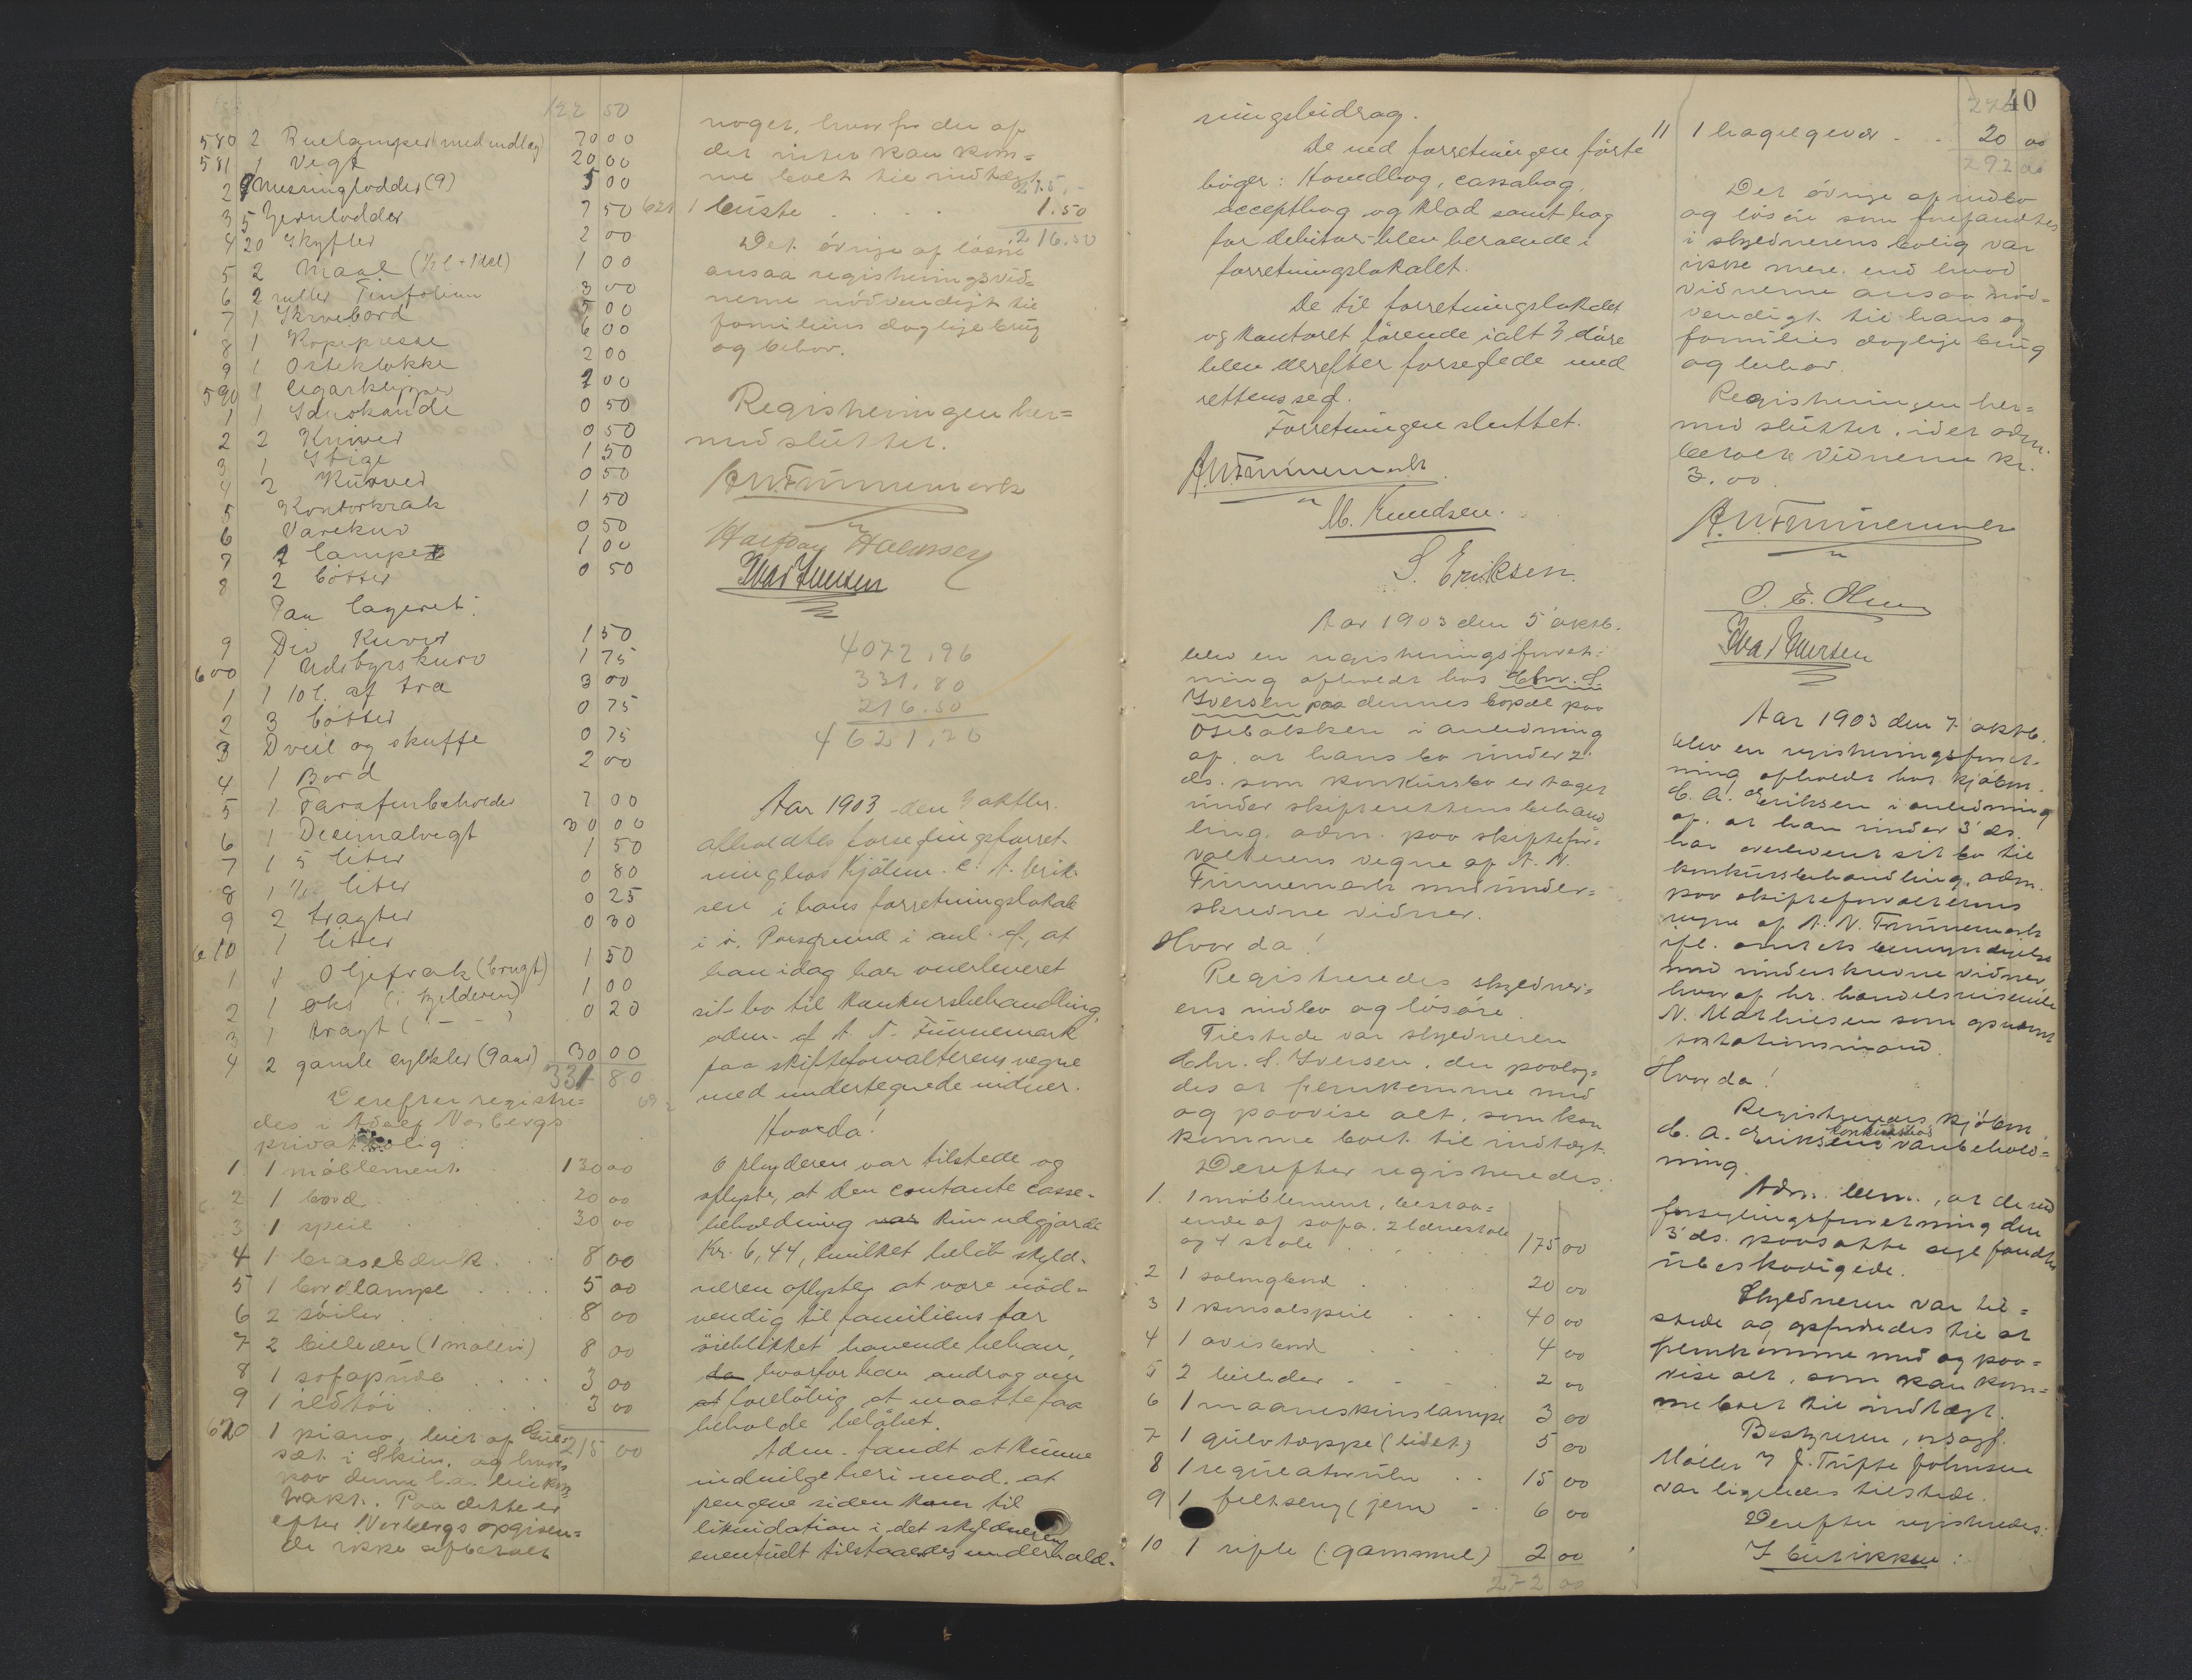 122 50
580 2 Buelamper (med indlag) 70 00
581 1 Vegt 20 00
2 9 Messinglodder (9) 5 00
3 5 Jernlodder 7 50
4 20 Skyfler 2 00
5 2 Maal (½ l + 1 del) 1 00
6 2 ruller Tinfolium 3 00
7 1 Skrivebord 5 00
8 1 Kopipresse 6 00
9 1 Osteklokke 2 00
590 1 Cigarklipper 2 00
1 1 Saftkande 0 50
2 2 Kniver 0 50
3 1 Stige 1 50
4 2 Kurver 0 50
5 Kontorkrak 1 50
6 Varekurv 0 50
7 1 Lampe 1 00
8 2 bötter 0 50
Paa lageret:
9 Div Kurver 1 50
600 1 Udsbyrskurv 1 75
1 1 10 l. af træ 3 00
2 3 bötter 0 75
3 Dveil og skuffe 0 75
4 1 Bord 2 00
5 1 Parafinbeholder 7 00
6 1 Decimalvegt 30 00
7 1 5 liter 1 50
8 1 1/2 liter 0 80
9 2 tragter 0 25
610 1 liter 0 30
1 1 Oljefrak (brugt) 1 50
2 1 öks (i kjelderen) 1 00
3 1 tragt ( — — ) 0 20
4 2 gamle cykkler (9 aar) 30 00
331 80
Derefter registre=
des i Adolf Norbergs
privatbolig:
1 1 möblement 130 00
2 1 bord 20 00
3 1 speil 30 00
4 1 brasebænk 8 00
5 1 bordlampe 5 00
6 2 söiler 8 00
7 2 billeder (1 maleri) 8 00
8 1 sofapude 3 00
9 1 ildtöi 3 00
620 1 piano, leiet af Gul=
215 00
sæt i Skien, og hvor
paa denne har leiekon=
trakt. Paa dette er
efter Norbergs opgiven=
de ikke afbetalt
noget, hvorfor der af
det intet kan kom=
me boet til indtægt
215,-
621 1 büste 1.50
216.50
Det övrige af lösöre
ansaa registreringsvid=
nerne nödvendigt til
familiens daglige brug
og behov.
Registreringen her=
med slüttet.
A. N. Finnemark
Ivar Iversen
4072,96
331,80
216.50
4621,26
Aar 1903 den 3 oktbr.
afholdtes forseglingsforret-
ning hos Kjöbm. C. A. Erik-
sen i hans forretningslokale
i ö. Porsgrund i anl. af, at
han idag har overleveret
sit bo til konkursbehandling,
adm. af A. N. Finnemark
paa skifteforvalterens vegne
med undertegnede vidner.
Hvorda!
Skyldneren var tilstede og
oplyste, at den contante casse-
beholdning var kun udgjorde
Kr. 6,44, hvilket beløb skyld-
neren oplyste at være nöd-
vendig til familiens for
öieblikket havende behov,
da hvorfor han androg om
at forelöbig at maatte faa
beholde belöbet.
Adm. fandt at kunne
indvilge heri mod, at
pengene siden kom til
likvidation i det skyldneren
eventuelt tilstaaendes underhold-
ningsbidrag.
De ved forretningen förte
böger: Hovedbog, cassabog,
acceptbog og klad samt bog
for debitor blev beroende i
forretningslokalet.
De til forretningslokalet
og kontoret förende ialt 3 döre
blev derefter forseglede med
rettens segl.
Forretningen sluttet.
A. N. Finnemark
M. Knudsen.
S. Eriksen.
Aar 1903 den 5' oktb.
blev en registreringsforret=
ning afholdt hos Chr. S.
Iversen paa dennes bopæl paa
Osebakken i anledning
af, at hans bo under 2'
ds. som konkursbo er taget
under skifterettens behand
ling. adm. paa skiftefor=
valterens vegne af A. N.
Finnemark med under=
skrevne vidner.
Hvor da!
Registreredes skyldner=
ens indbo og lösöre.
Tilstede var skyldneren
Chr. S. Iversen, der paalag=
des at fremkomme med
og paavise alt, som kan
komme boet til indtægt.
Derefter registreredes:
1. 1 möblement, bestaa=
ende af sofa, 2 lænestole
og 4 stole 175 00
2 1 salongbord 20 00
3 1 konsolspeil 40 00
4 1 avisbord 4 00
5 2 billeder 2 00
6 1 maaneskinslampe 3 00
7 1 gulvtæppe (lidet) 5 00
8 1 regulatorur 15 00
9 1 feltseng (jern) 6 00
10 1 rifle (gammel) 2 00
272 00
40
272
11 1 haglgevær 20 00
292 00
Det övrige af indbo
og lösöre som forefandtes
i skyldnerens bolig var
ikke mere end hvad
vidnerne ansaa nöd=
vendigt til hans og
families daglige brug
og behov.
Registreringen her=
med slüttet, idet adm.
betalte vidnerne kr.
3.00.
A. N. Finnemark
O. E. Olsen
Ivar Iversen
Aar 1903 den 7' oktb.
blev en registreringsforret-
ning afholdt hos kjöbm.
C. A. Eriksen i anledning
af, at han under 3' ds.
har overleveret sit bo til
konkursbehandling, adm.
paa skifteforvalterens
vegne af A. N. Finnemark
ifl. amtets bemyndigelse
med underskrevne vidner
hvoraf hr. handelsreisende
N. Mathiesen som opnævnt
taxtationsmand.
Hvor da!
Registreredes kjöbm.
C. A. Eriksens konkursbos varebehold=
ning.
Adm. bem., at de ved
forseglingsforretning den
3' ds. paasatte segl fandtes
ubeskadigede.
Skyldneren var til=
stede og opfordredes til at
fremkomme med og paa=
vise alt, som kan kom=
me boet til indtægt.
Bestyreren, orsagf.
Möller &amp; J. Trifte Johnsen
var ligeledes tilstede.
Derefter registreredes:
I butikken: